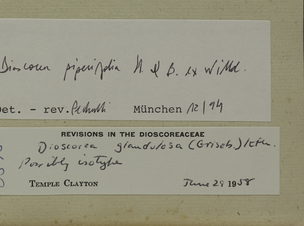 Dioscorea piperifolia H. & B. ex Willd.
Det. - rev. München 12/94
REVISIONS IN THE DIOSCOREACEAE
Dioscorea glandulosa (Griseb.) Kth.
Possibly isotype
TEMPLE CLAYTON June 29 1958